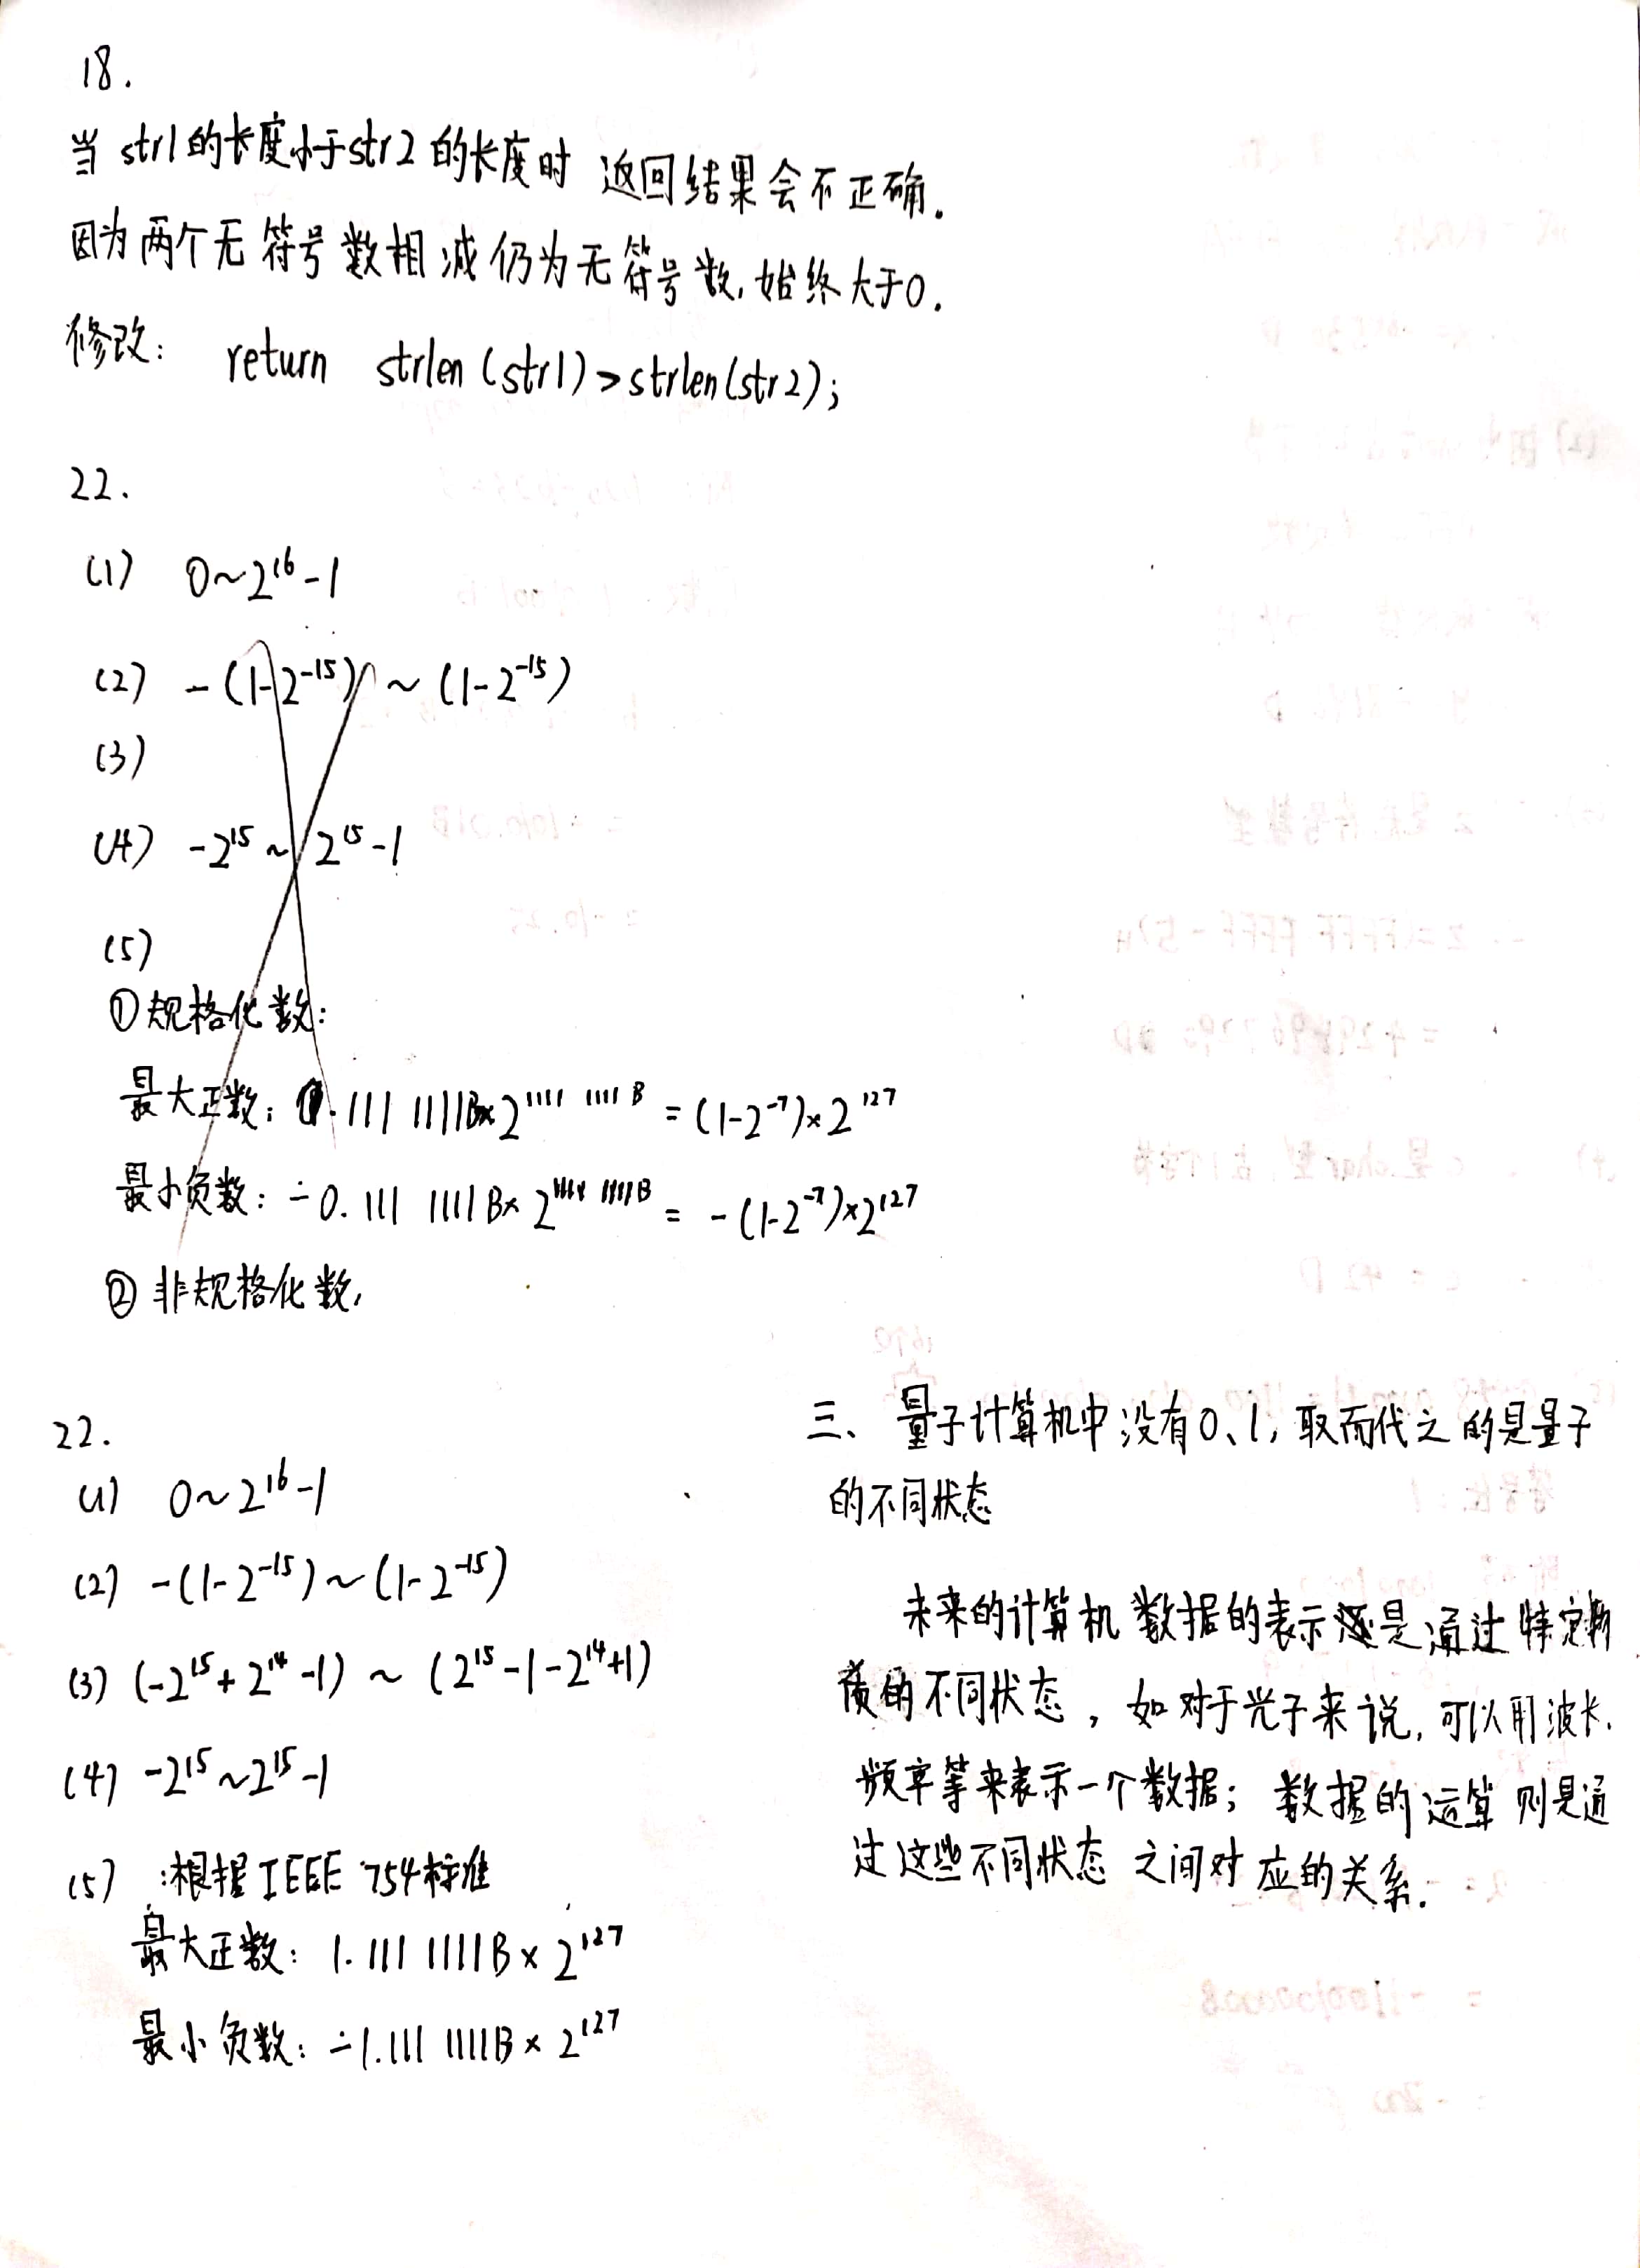 18.
当 str1的长度小于str2 的长度时 返回结果会不正确.
因为两个无符号数相减仍为无符号数,始终大于0.
修改: return strlen(str1)>strlen(str2);
22.
(1) 0~2¹⁶-1
(2) -(1-2⁻¹⁵) ~ (1-2⁻¹⁵)
(3)
(4) -2¹⁵ ~ 2¹⁵-1
(5)
①规格化数:
最大正数: 0.111 1111B×2¹¹¹¹ ¹¹¹¹ ᴮ = (1-2⁻⁷)×2¹²⁷
最小负数: -0.111 1111B×2¹¹¹¹ ¹¹¹¹ᴮ = -(1-2⁻⁷)×2¹²⁷
②非规格化数,
22.
(1) 0~2¹⁶-1
(2) -(1-2⁻¹⁵)~(1-2⁻¹⁵)
(3) (-2¹⁵+2¹⁴-1) ~ (2¹⁵-1-2¹⁴+1)
(4) -2¹⁵~2¹⁵-1
(5) :根据IEEE 754标准
最大正数: 1.111 1111B×2¹²⁷
最小负数: -1.111 1111B×2¹²⁷
三、量子计算机中没有0、1, 取而代之的是量子
的不同状态
未来的计算机数据的表示还是通过特定物
质的不同状态, 如对于光子来说, 可以用波长、
频率等来表示一个数据; 数据的运算则是通
过这些不同状态之间对应的关系.